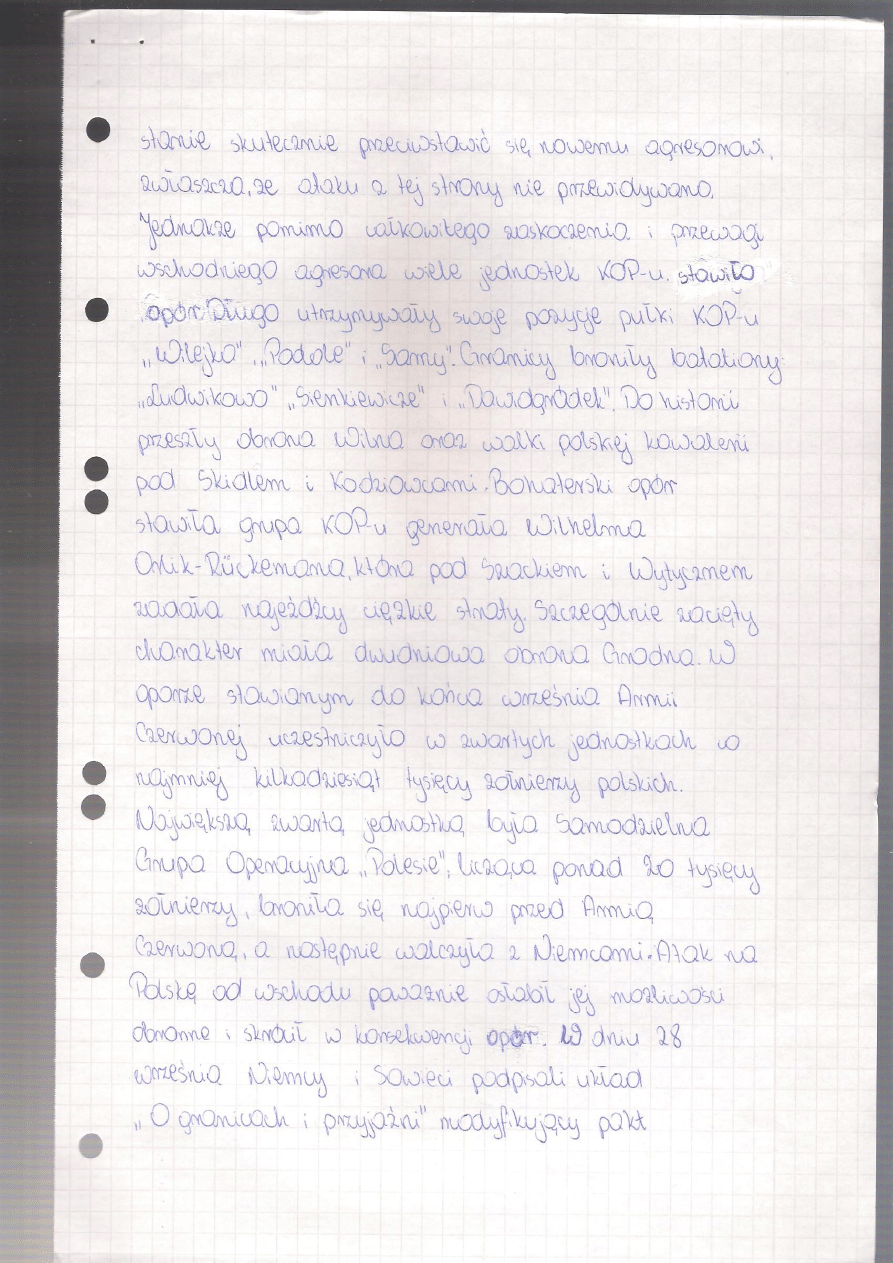 stanie skutecznie przeciwstawić się nowemu agresorowi,
zwłaszcza, że ataku z tej strony nie przewidywano.
Jednakże pomimo całkowitego zaskoczenia i przewagi
wschodniego agresora wiele jednostek KOP-u stawiło
opór. Długo utrzymywały swoje pozycje pułki KOP-u
„Wilejka" „Podole" i „Sarny". Granicy broniły bataliony:
„Ludwikowo" „Sienkiewicze" i „Dawidgródek". Do historii
przeszły obrona Wilna oraz walki polskiej kawalerii
pod Skidlem i Kodziowcami. Bohaterski opór
stawiła grupa KOP-u generała Wilhelma
Orlik-Rückemana, która pod Szackiem i Wytycznem
zadała najeźdźcy ciężkie straty. Szczególnie zacięty
charakter miała dwudniowa obrona Grodna. W
oporze stawianym do końca września Armii
Czerwonej uczestniczyło w zwartych jednostkach co
najmniej kilkadziesiąt tysięcy żołnierzy polskich.
Największą zwartą jednostką była Samodzielna
Grupa Operacyjna „Polesie", licząca ponad 20 tysięcy
żołnierzy, broniła się najpierw przed Armią
Czerwoną, a następnie walczyła z Niemcami. Atak na
Polskę od wschodu poważnie osłabił jej możliwości
obronne i skrócił w konsekwencji opór. W dniu 28
września Niemcy i Sowieci podpisali układ
„O granicach i przyjaźni" modyfikujący pakt